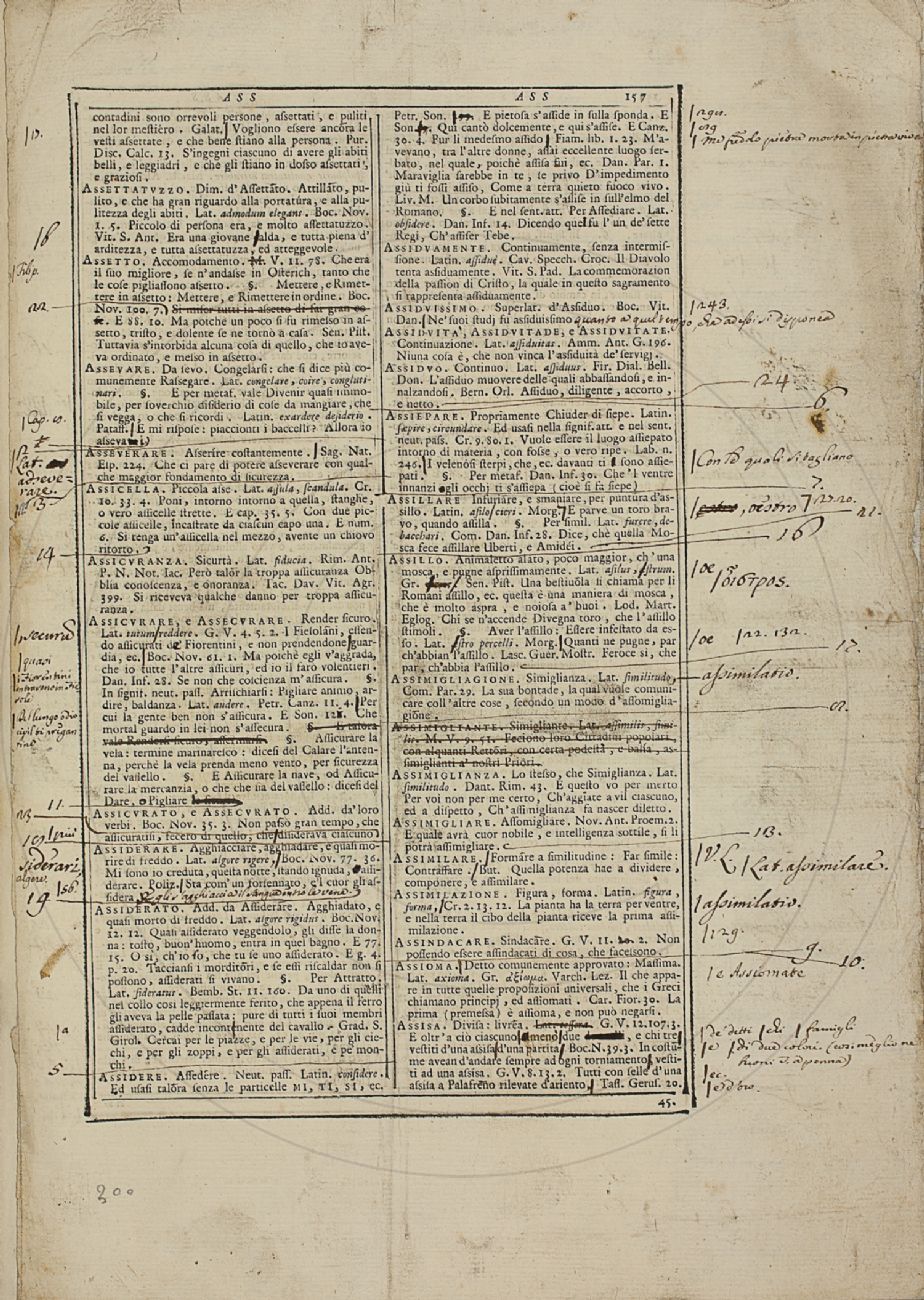 ASS
ASS 157
contadini sono orrevoli persone, assettati, e puliti
nel lor mestièro. Galat. Vogliono essere ancòra le
vesti assettate, e che bene stiano alla persona. Pur.
Disc. Calc. 13. S'ingegni ciascuno di avere gli abiti
belli, e leggiadri, e che gli stiano in dosso assettati,
e graziosi.
ASSETTATVZZO. Dim. d'Assettàto. Attillàto, pu-
lito, e che ha gran riguardo alla portatùra, e alla pu-
litezza degli abiti. Lat. admodum elegans. Boc. Nov.
1. 5. Piccolo di persona era, e molto assettatuzzo.
Vit. S. Ant. Era una giovane salda, e tutta piena d'
arditezza, e tutta assettatuzza, ed atteggevole.
ASSETTO. Accomodamento. M. V. 11. 78. Che era
il suo migliore, se n'andasse in Osterich, tanto che
le cose pigliassono assetto. §. Mettere, e Rimet-
tere in assetto: Mettere, e Rimettere in ordine. Boc.
Nov. 100. 7. Si misser tutti in assetto di far gran co-
E 88. 10. Ma poiche un poco si fu rimesso in as-
setto, tristo, e dolente se ne tornò a casa. Sen. Pist.
Tuttavia s'intorbida alcuna cosa di quello, che io ave-
va ordinato, e messo in assetto.
ASSEVARE. Da sevo. Congelarsi: che si dice più co-
munemente Rassegare. Lat. congelare, coire, congluti-
nari. §. E per metaf. vale Divenir quasi immo-
bile, per soverchio disidèrio di cose da mangiare, che
si vegga, o che si ricordi. Latin. exardere desiderio.
Pataff. E mi rispose: piaccionti i baccelli? Allora io
assevai
ASSEVERARE. Asserire costantemente. Sag. Nat.
Esp. 224. Che ci pare di potere asseverare con qual-
che maggior fondamento di sicurezza.
ASSICELLA. Piccola asse. Lat. assula, scandula. Cr.
10. 33. 4. Poni, intorno intorno a quella, stanghe,
o vero assicelle strette. E cap. 35. 5. Con due pic-
cole assicelle, incastrate da ciascun capo una. E num.
6. Si tenga un'assicella nel mezzo, avente un chiovo
ritorto.
ASSICVRANZA. Sicurtà. Lat. fiducia. Rim. Ant.
P. N. Not. Iac. Però talòr la troppa assicuranza Ob-
blia conoscenza, e onoranza. Tac. Dav. Vit. Agr.
399. Si riceveva qualche danno per troppa assicu-
ranza.
ASSICVRARE, e ASSECVRARE. Render sicuro.
Lat. tutum reddere. G. V. 4. 5. 2. I Fiesolàni, essen-
do assicurati de' Fiorentini, e non prendendone guar-
dia, ec. Boc. Nov. 61. 1. Ma poichè egli v'aggrada,
che io tutte l'altre assicuri, ed io il farò volentieri.
Dan. Inf. 28. Se non che coscienza m'assicura. §.
In signif. neut. pass. Arrischiarsi: Pigliare animo, ar-
dire, baldanza. Lat. audere. Petr. Canz. 11. 4. Per
cui la gente ben non s'assicura. E Son. 128. Che
mortal guardo in lei non s'assecura. §. E talora
vale Rendersi sicuro, assermarsi. §. Assicurare la
vela: termine marinaresco: dicesi del Calare l'anten-
na, perchè la vela prenda meno vento, per sicurezza
del vassello. §. E Assicurare la nave, od Assicu-
rare la mercanzia, o che che sia del vassello: dicesi del
Dare, o Pigliare
ASSICVRATO, e ASSECVRATO. Add. da'loro
verbi. Boc. Nov. 35. 3. Non passò gran tempo, che
assicuratisi, fecero di quello, che disiderava ciascuno
ASSIDERARE. Agghiacciare, agghiadare, e quasi mo-
rire di freddo. Lat. algore rigere. Boc. Nov. 77. 36.
Mi sono io creduta, questa notte, stando ignuda, assi-
derare. Poliz. Sta com'un forsennato, e'l cuor gli as-
sidera
ASSIDERATO. Add. da Assiderare. Agghiadato, e
quasi morto di freddo. Lat. algore rigidus. Boc. Nov.
12. 12. Quasi assiderato veggendolo, gli disse la don-
na: tosto, buon'huomo, entra in quel bagno. E 77.
15. O sì, ch'io so, che tu se uno assiderato. E g. 4.
p. 20. Taccianisi i morditòri, e se essi riscaldar non si
possono, assiderati si vivano. §. Per Attratto.
Lat. sideratus. Bemb. St. 11. 160. Da uno di questi
nel collo così leggiermente ferito, che appena il ferro
gli aveva la pelle passata: pure di tutti i suoi membri
assiderato, cadde incontinente del cavallo. Grad. S.
Girol. Cercai per le piazze, e per le vie, per gli cie-
chi, e per gli zoppi, e per gli assiderati, è pe' mon-
chi.
ASSIDERE. Assedère. Neut. pass. Latin. considere.
Ed usasi talòra senza le particelle MI, TI, SI, ec.
Petr. Son. E pietosa s'asside in sulla sponda. E
Son. Qui cantò dolcemente, e qui s'assise. E Canz.
30. 4. Pur lì medesmo assido. Fiam. lib. 1. 23. M'a-
vevano, tra l'altre donne, assai eccellente luogo ser-
bato, nel quale, poichè assisa fui, ec. Dan. Par. 1.
Maraviglia sarebbe in te, se privo D'impedimento
giù ti fossi assiso, Come a terra quieto fuoco vivo.
Liv. M. Un corbo subitamente s'assise in sull'elmo del
Romano. §. E nel sent. att. Per Assediare. Lat.
obsidere. Dan. Inf. 14. Dicendo quel fu l'un de'sette
Regi, Ch'assiser Tebe.
ASSIDVAMENTE. Continuamente, senza intermis-
sione. Latin. assiduè. Cav. Specch. Croc. Il Diavolo
tenta assiduamente. Vit. S. Pad. La commemorazion
della passion di Cristo, la quale in questo sagramento
si rappresenta assiduamente.
ASSIDVISSIMO. Superlat. d'Assiduo. Boc. Vit.
Dan. Ne' suoi studj fu assiduissimo quanto a quel tempo, che ad essi si disponea
ASSIDVITA', ASSIDVITADE, e ASSIDVITATE.
Continuazione. Lat. assiduitas. Amm. Ant. G. 196.
Niuna cosa è, che non vinca l'assiduità de'servigj.
ASSIDVO. Continuo. Lat. assiduus. Fir. Dial. Bell.
Don. L'assiduo muovere delle quali abbassandosi, e in-
nalzandosi. Bern. Orl. Assiduo, diligente, accorto,
e netto.
ASSIEPARE. Propriamente Chiuder di siepe. Latin.
sæpire, circumdare. Ed usasi nella signif. att. e nel sent.
neut. pass. Cr. 9. 80. 1. Vuole essere il luogo assiepato
intorno di materia, con fosse, o vero ripe. Lab. n.
246. I velenosi sterpi, che, ec. davanti ti sono assie-
pati. §. Per metaf. Dan. Inf. 30. Che'l ventre
innanzi agli occhi ti s'assiepa (cioè si fa siepe)
ASSILLARE Infuriare, e smaniare, per puntura d'as-
sillo. Latin. asilo cieri. Morg. E parve un toro bra-
vo, quando assilla. §. Per simil. Lat. furere, de-
bacchari. Com. Dan. Inf. 28. Dice, chè quella Mo-
sca fece assillare Uberti, e Amidèi.
ASSILLO. Animaletto alato, poco maggior, ch'una
mosca, e pugne asprissimamente. Lat. asilus, æstrum.
Gr. Sen. Pist. Una bestiuòla si chiama per li
Romani assillo, ec. questa è una maniera di mosca,
che è molto aspra, e noiosa a' buoi. Lod. Mart.
Eglog. Chi se n'accende Divegna toro, che l'assillo
stimoli. §. Aver l'assillo: Essere infestato da es-
so: Lat. æstro percelli. Morg. Quanti ne pugne, par
ch'abbian l'assillo. Lasc. Guer. Mostr. Feroce sì, che
par, ch'abbia l'assillo.
ASSIMIGLIAGIONE. Simiglianza. Lat. similitudo.
Com. Par. 29. La sua bontade, la qual vuole comuni-
care coll'altre cose, secondo un modo d'assomiglia-
gione.
ASSIMIGLIANTE. Simigliante. Lat. assimilis, simi-
lis. M. V. 9. 51. Feciono loro Cittadini popolari,
con alquanti Rettòri, con certa podestà, e balìa, as-
simiglianti a' nostri Priòri.
ASSIMIGLIANZA. Lo stesso, che Simiglianza. Lat.
similitudo. Dant. Rim. 43. E questo vo per merto
Per voi non per me certo, Ch'aggiate a vil ciascuno,
ed a dispetto, Ch'assimiglianza fa nascer diletto.
ASSIMIGLIARE. Assomigliare. Nov. Ant. Proem. 2.
E quale avrà cuor nobile, e intelligenza sottile, sì li
potrà assimigliare.
ASSIMILARE. Formàre a similitudine: Far simile:
Contraffàre. But. Quella potenza hae a dividere,
componere, e assimilare.
ASSIMILAZIONE. Figura, forma. Latin. figura,
forma. Cr. 2. 13. 12. La pianta ha la terra per ventre,
e nella terra il cibo della pianta riceve la prima assi-
milazione.
ASSINDACARE. Sindacàre. G. V. 11. 2. Non
possendo essere assindacati di cosa, che facessono.
ASSIOMA. Detto comunemente approvato: Massima.
Lat. axioma. Gr. ἀξίωμα. Varch. Lez. Il che appa-
re in tutte quelle proposizioni universali, che i Greci
chiamano principj, ed assiomati. Car. Fior. 30. La
prima (premessa) è assioma, e non può negarsi.
ASSISA. Divisa: livrèa. G. V. 12. 107. 3.
E oltr'a ciò ciascuno almeno due, e chi tre
vestiti d'una assisa d'una partita. Boc. N. 39. 3. In costu-
me avean d'andare sempre ad ogni torniamento, vesti-
ti ad una assisa. G. V. 8. 13. 2. Tutti con selle d'una
assisa a Palafreno rilevate d'ariento. Tass. Gerus. 20.
45.
16
Filip.
22.
Cap. 10.
Lat.
asseve-
rare.
13
14
securũ
11
23
siderari,
algere
56.
19
1a
5
243.
24
6
Con le quali si bagliano
7.
, oestro 7 23. 20.
21.
16
oe
οἶστρος.
oe 22. 132.
12.
assimilatio.
22.
113.
V. L. Lat. assimilare.
assimilatio.
129.
9.
10.
e Assiomate
de' detti edi famigli
e di due colori (cosi meglio ne
buoni
ec.
e d'oro.
300